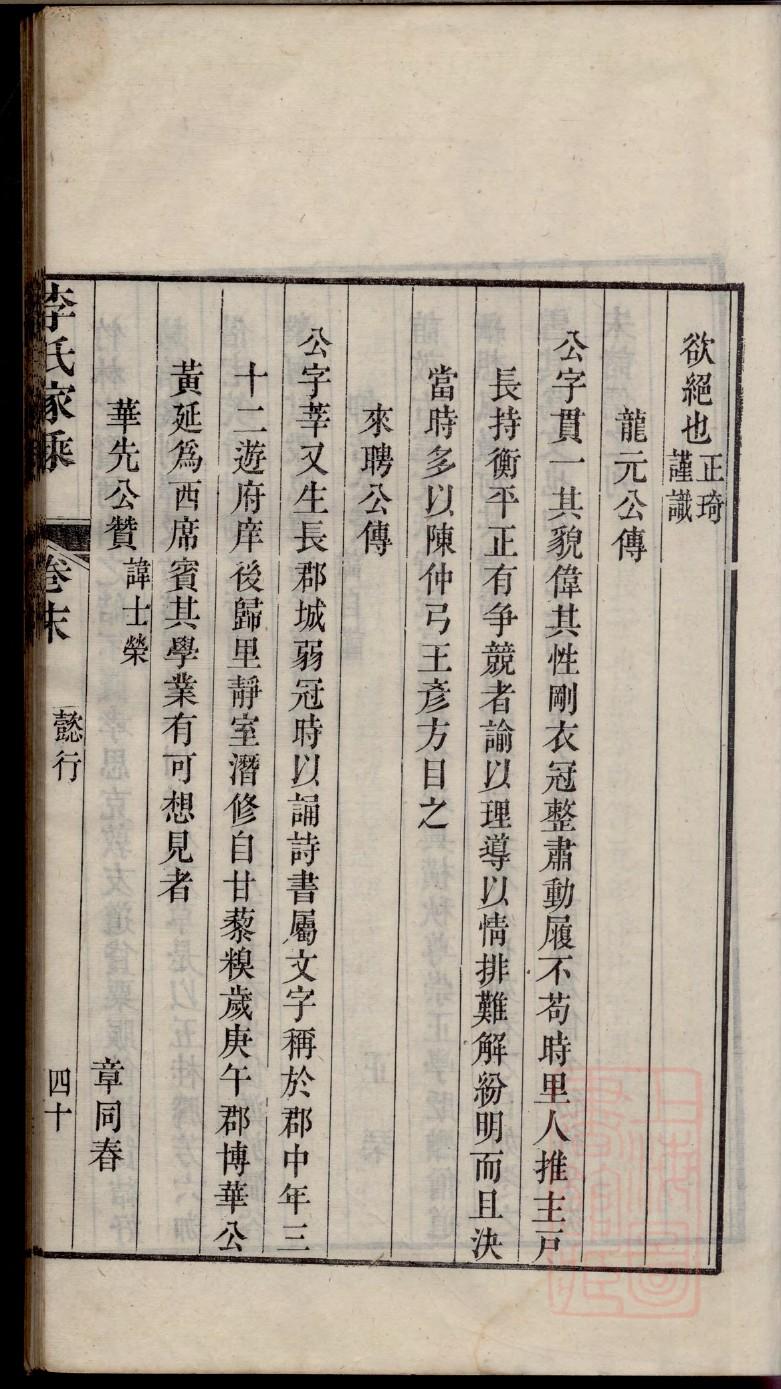 欲絕也正琦謹識
龍元公傳
公字貫一其貌偉其性剛衣冠整肅動履不苟時里人推主戸
長持衡平正有争競者諭以理導以情排難解紛明而且決
當時多以陳仲弓王彥方目之
來聘公傳
公字莘又生長郡城弱冠時以誦詩書屬文字稱於郡中年三
十二遊府庠後歸里靜室潛修自甘藜糗歲庚午郡博華公
黃延爲西席賓其學業有可想見者
華先公贊 諱士榮 章同春
李氏家乘 卷末 懿行 四十